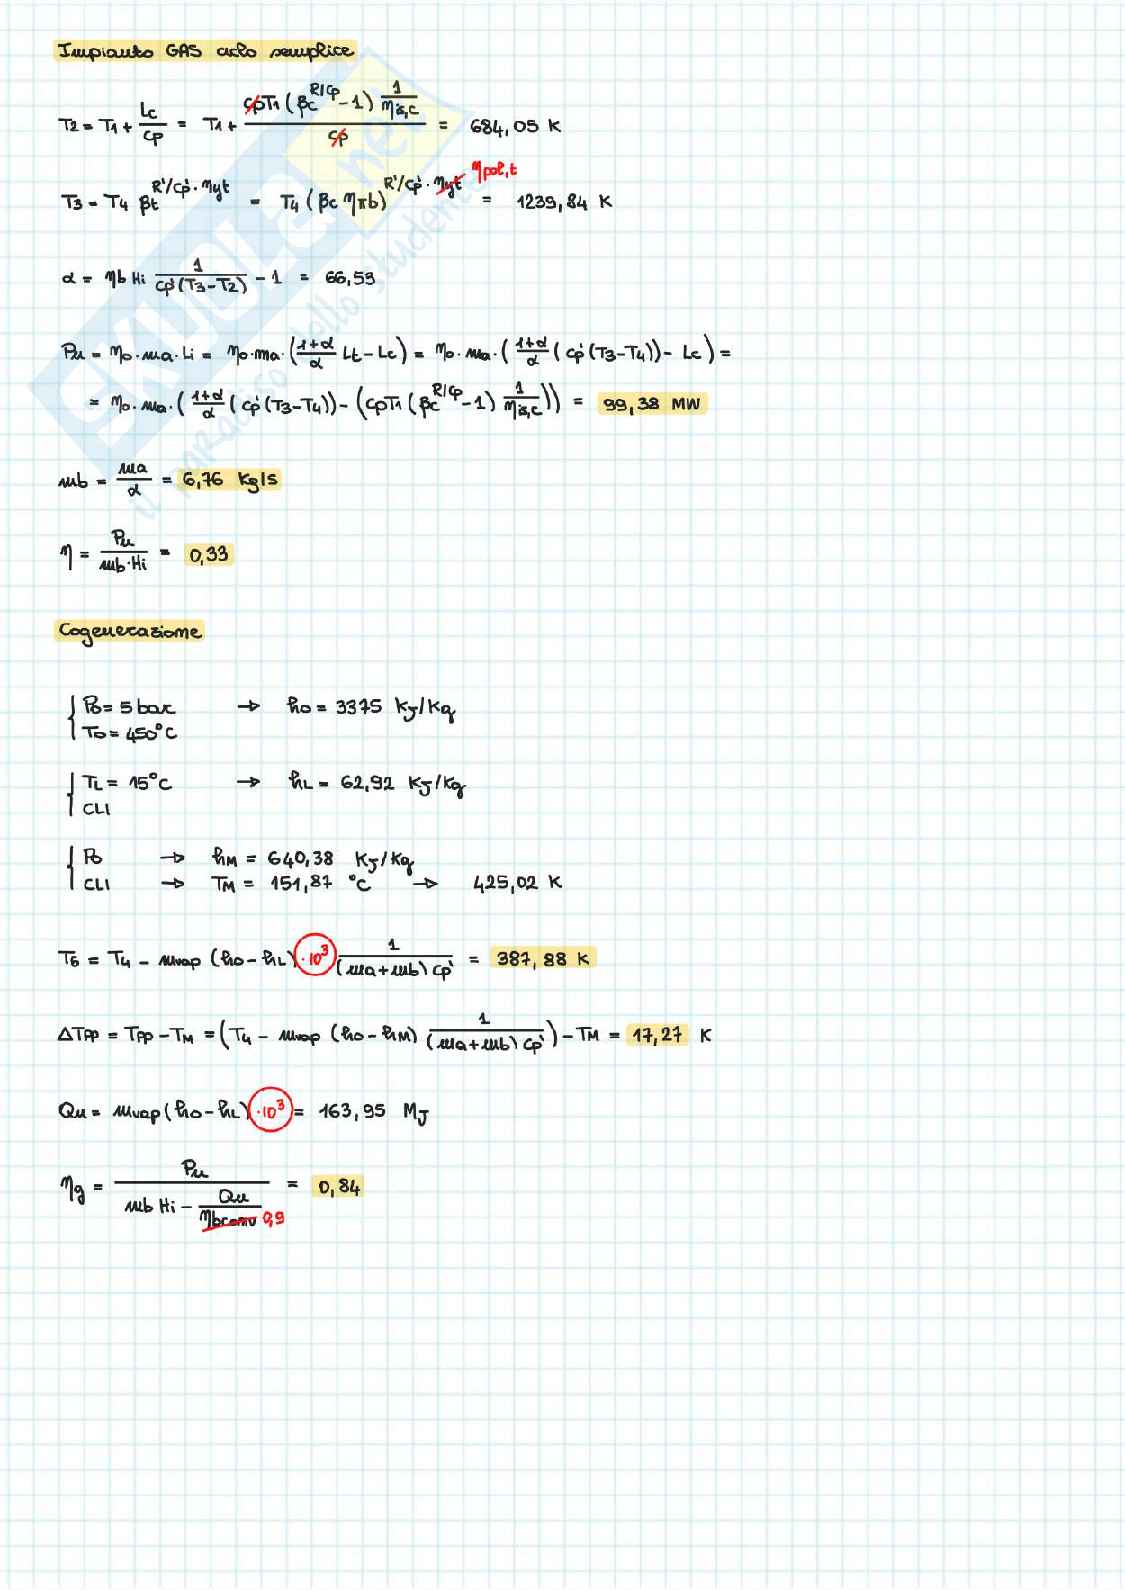 Impianto GAS ciclo semplice
T2 = T1 + Lc/cp = T1 + cpT1 (βc^(R/cp) - 1) 1/ηis,c / cp = 684,05 K
T3 = T4 βt^(R'/cp' · ηyt) = T4 (βc ηπb)^(R'/cp' · ηyt ηpol,t) = 1239,84 K
α = ηb Hi 1/(cp'(T3-T2)) - 1 = 66,53
Pu = ηo · ma · Li = ηo · ma · ((1+α)/α Lt - Lc) = ηo · ma · ((1+α)/α (cp'(T3-T4)) - Lc) =
= ηo · ma · ((1+α)/α (cp'(T3-T4)) - (cpT1 (βc^(R/cp) - 1) 1/ηis,c)) = 99,38 MW
mb = ma/α = 6,76 Kg/s
η = Pu/(mb·Hi) = 0,33
Cogenerazione
{ Po = 5 bar → ho = 3375 KJ/Kg
To = 450°C
{ TL = 15°C → hL = 62,92 KJ/Kg
CLI
{ Po → hM = 640,38 KJ/Kg
CLI → TM = 151,87 °C → 425,02 K
T6 = T4 - mvap (ho - hL) ·10³ 1/((ma+mb) cp') = 387,88 K
ΔTpp = Tpp - TM = (T4 - mvap (ho - hM) 1/((ma+mb) cp')) - TM = 17,27 K
Qu = mvap (ho - hL) ·10³ = 163,95 MJ
ηg = Pu / (mb Hi - Qu/ηbconv 0,9) = 0,84
SKUOLA.net
il paradiso dello studente